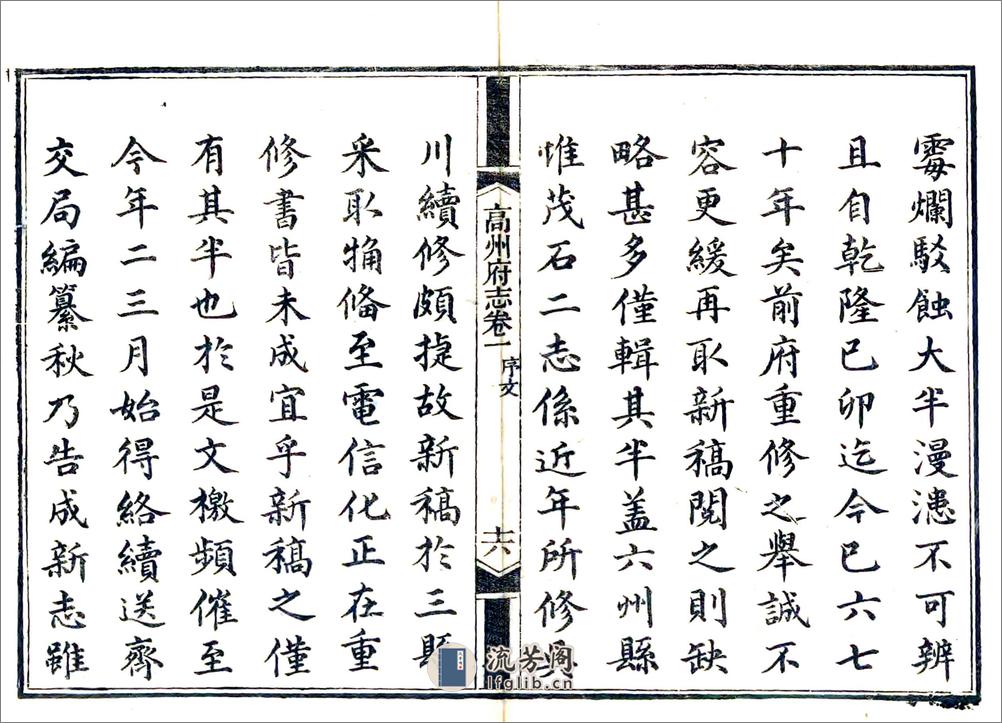 霉爛駁蝕大半漫漶不可辨
且自乾隆己卯迄今已六七
十年矣前府重修之舉誠不
容更緩再取新稿閱之則缺
略甚多僅輯其半蓋六州縣
惟茂石二志係近年所修吳
高州府志卷一
序文
十六
川續修頗捷故新稿於三縣
采取犄偹至電信化正在重
修書皆未成宜乎新稿之僅
有其半也於是文檄頻催至
今年二三月始得絡續送齊
交局編纂秋乃告成新志雖
流芳阁
lfglib.cn